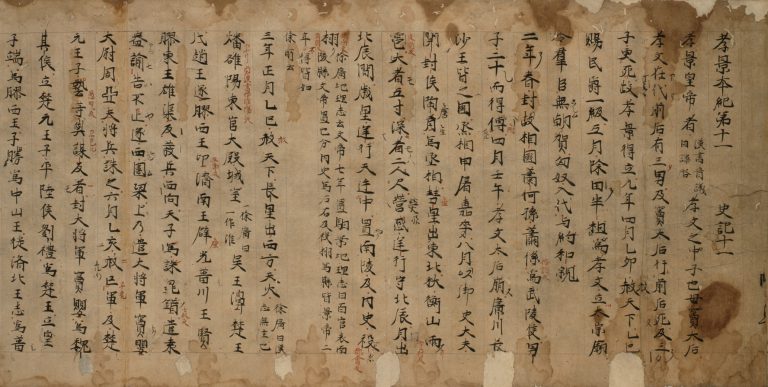 孝景本紀第十一 史記十一
孝景皇帝者 漢書音義曰諱啓 孝文之中子也母竇太后
孝文在代前后有三男及竇太后得幸前后死及三
子更死故孝景得立元年四月乙卯赦天下乙巳
賜民爵一級五月除田半租為孝文立太宗廟
令羣臣無朝賀匈奴入代与約和親
二年春封故相國蕭何孫蕭係為武陵侯男
子二十而得傅四月壬午孝文太后崩廣川長
沙王皆之國丞相申屠嘉卒八月以御史大夫
開封侯陶青為丞相彗星出東北秋衡山雨
雹大者五寸深者二尺熒惑逆行守北辰月出
北辰間歲星逆行天廷中置南陵及內史役
祤 徐廣地理志云文帝七年置
三年正月乙巳赦天下長星出西方天火 徐廣曰漢志無
燔雒陽東宮大殿城室 徐廣曰雒一作淮 吳王濞楚王
戊趙王遂膠西王卬濟南王辟光菑川王賢
膠東王雄渠反發兵西向天子為誅晁錯遣袁
盎諭告不止遂西圍梁上乃遣大將軍竇嬰
大尉周亞夫將兵誅之六月乙亥赦亡軍及楚
元王子蓺等与謀反者封大將軍竇嬰為魏
其侯立楚元王子平陸侯劉禮為楚王立皇
子端為膠西王子勝為中山王徙濟北王志為菑